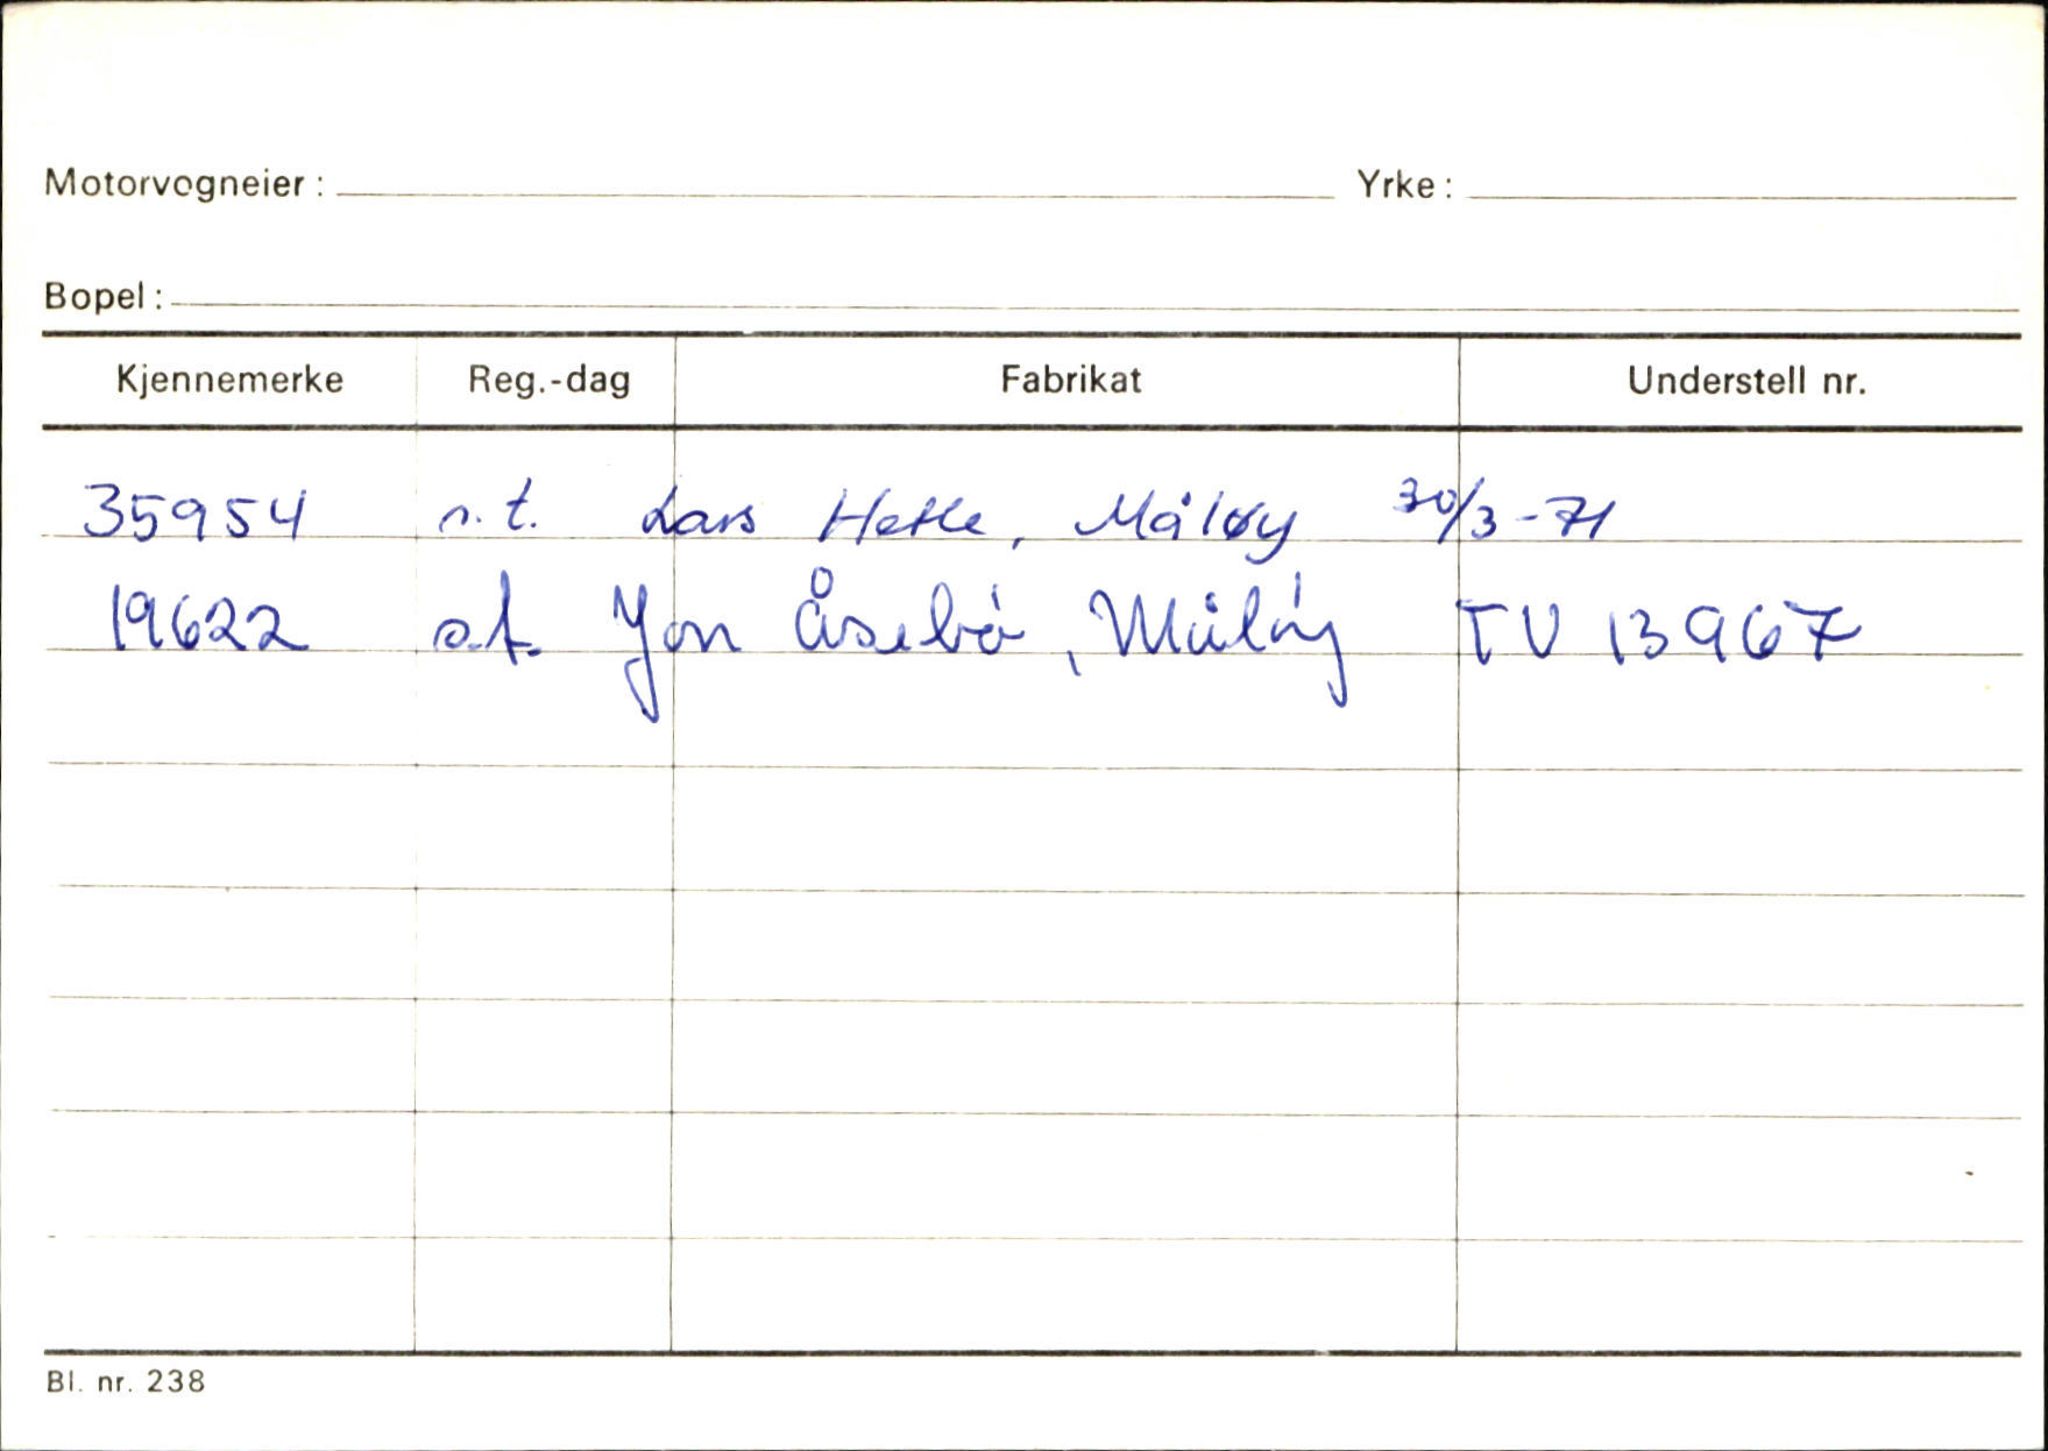 Motorvogneier: Yrke:
Bopel:
Kjennemerke Reg.-dag Fabrikat Understell nr.
35954 s.t. Lars Hetle, Måløy 30/3-71
19622 s.t. Jon Åsebø, Måløy TV 13967
Bl. nr. 238